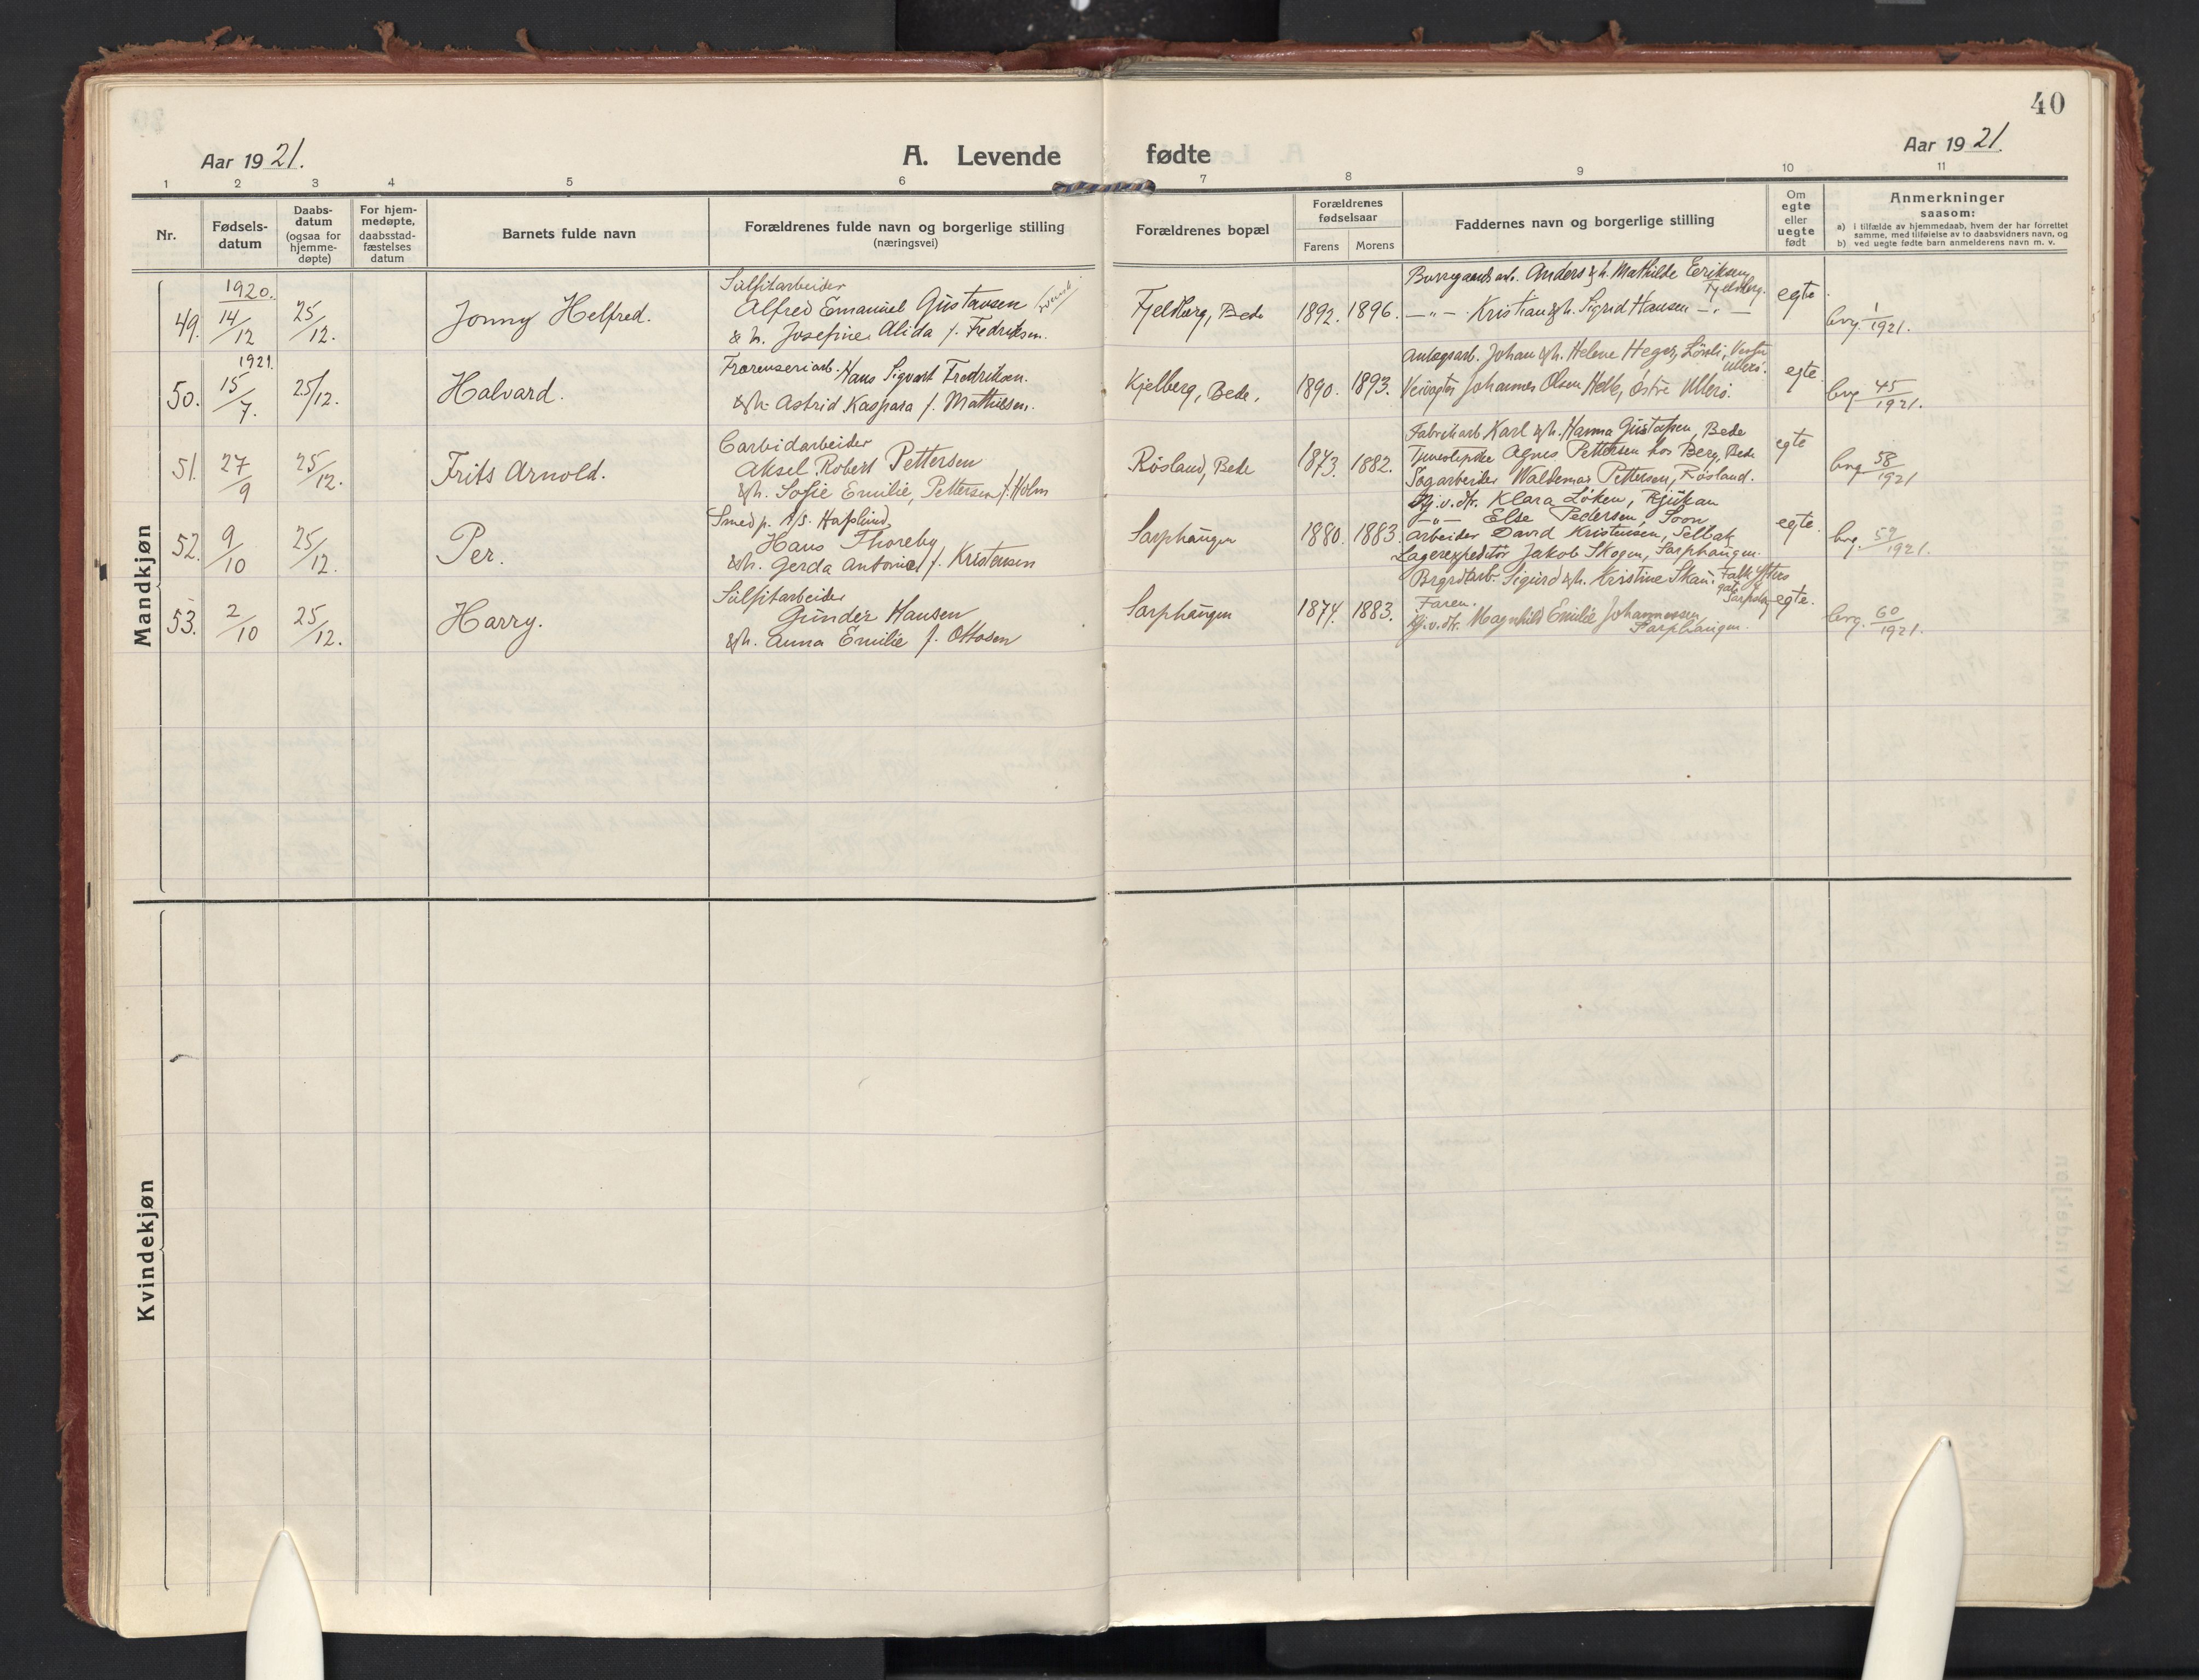 40
Aar 1921.
A. Levende fødte
Aar 1921.
1 2 3 4 5 6 7 8 9 10 11
Nr.
Fødsels-
datum
Daabs-
datum
(ogsaa for
hjemme-
døpte)
For hjem-
medøpte,
daabsstad-
fæstelses
datum
Barnets fulde navn
Forældrenes fulde navn og borgerlige stilling
(næringsvei)
Forældrenes bopæl
Forældrenes
fødselsaar
Farens Morens
Faddernes navn og borgerlige stilling
Om
egte
eller
uegte
født
Anmerkninger
saasom:
a) i tilfælde av hjemmedaab, hvem der har forrettet
samme, med tilføielse av to daabsvidners navn, og
b) ved uegte fødte barn anmelderens navn m. v.
Mandkjøn
49. 1920. 14/12 25/12. Jonny Helfred.
Sulfitarbeider
Alfred Emanuel Gustavsen
& h. Josefine Alida f. Fredriksen.
Fjeldberg, Bede 1892. 1896.
Borregaardsarb. Anders & h. Mathilde Eriksen,
Fjeldberg.
—"— Kristian & h. Sigrid Hansen —"—
egte.
brg. 1/1921.
50. 1921. 15/7. 25/12. Halvard.
Hans Sigvart Fredriksen.
& h. Astrid Kaspara f. Mathilsen.
Kjelberg, Bede, 1890. 1893.
Anlegsarb. Johan & h. Helene Heger,
Ullerø.
Johannes Olsen Østre Ullerø.
egte.
brg. 45/1921.
51. 27/9 25/12. Frits Arnold.
Carbidarbeider
Aksel Robert Pettersen
& h. Sofie Emilie, Pettersen f. Holm
Røsland, Bede 1873. 1882.
Fabrikarb Karl & h. Hanna Gustafsen, Bede
Tjenestepike Agnes Pettersen hos Berg, Bede
Sagarbeider Waldemar Pettersen, Røsland.
egte
brg. 58/1921
52. 9/10 25/12. Per.
Smed p. A/S. Hafslund,
Hans Thoreby
& h. Gerda Antonie f. Kristensen
Sarphaugen 1880. 1883.
Hj.v.dtr. Klara Løken, Rjukan
—"— Else Pedersen, Soon.
Arbeider David Kristensen, Selbak
Lagerexpeditør Jakob Skogen, Sarphaugen.
egte.
brg. 59/1921.
53. 2/10 25/12. Harry.
Sulfitarbeider
Gunder Hansen
& h. Anna Emilie f. Ottosen
Sarphaugen 1874. 1883.
Brgrdarb. Sigurd & h. Kristine Skau.
Faren.
Hj.v.dtr. Magnhild Emilie Johannessen,
Sarphaugen.
egte.
brg. 60/1921.
Kvindekjøn